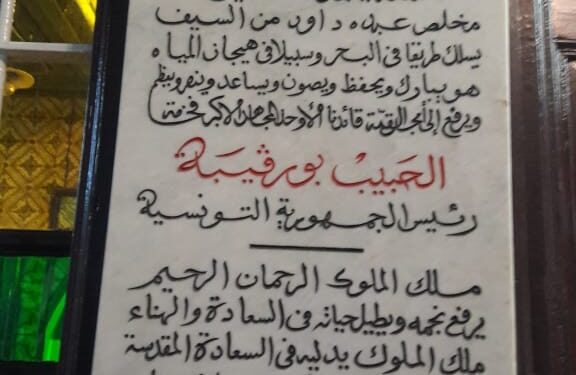 مخلص عبده داود من السيف
يسلك طريقا في البحر وسبيلا في هيجان المياه
هو يبارك ويحفظ ويصون ويساعد وينصر ويعظم
ويرفع إلى قائدنا الأوحد المجاهد الأكبر فخامة
الحبيب بورڤيبة
رئيس الجمهورية التونسية
ملك الملوك الرحمان الرحيم
يرفع نجمه ويطيل حياته في السعادة والهناء
ملك الملوك يدليه في السعادة المقدسة